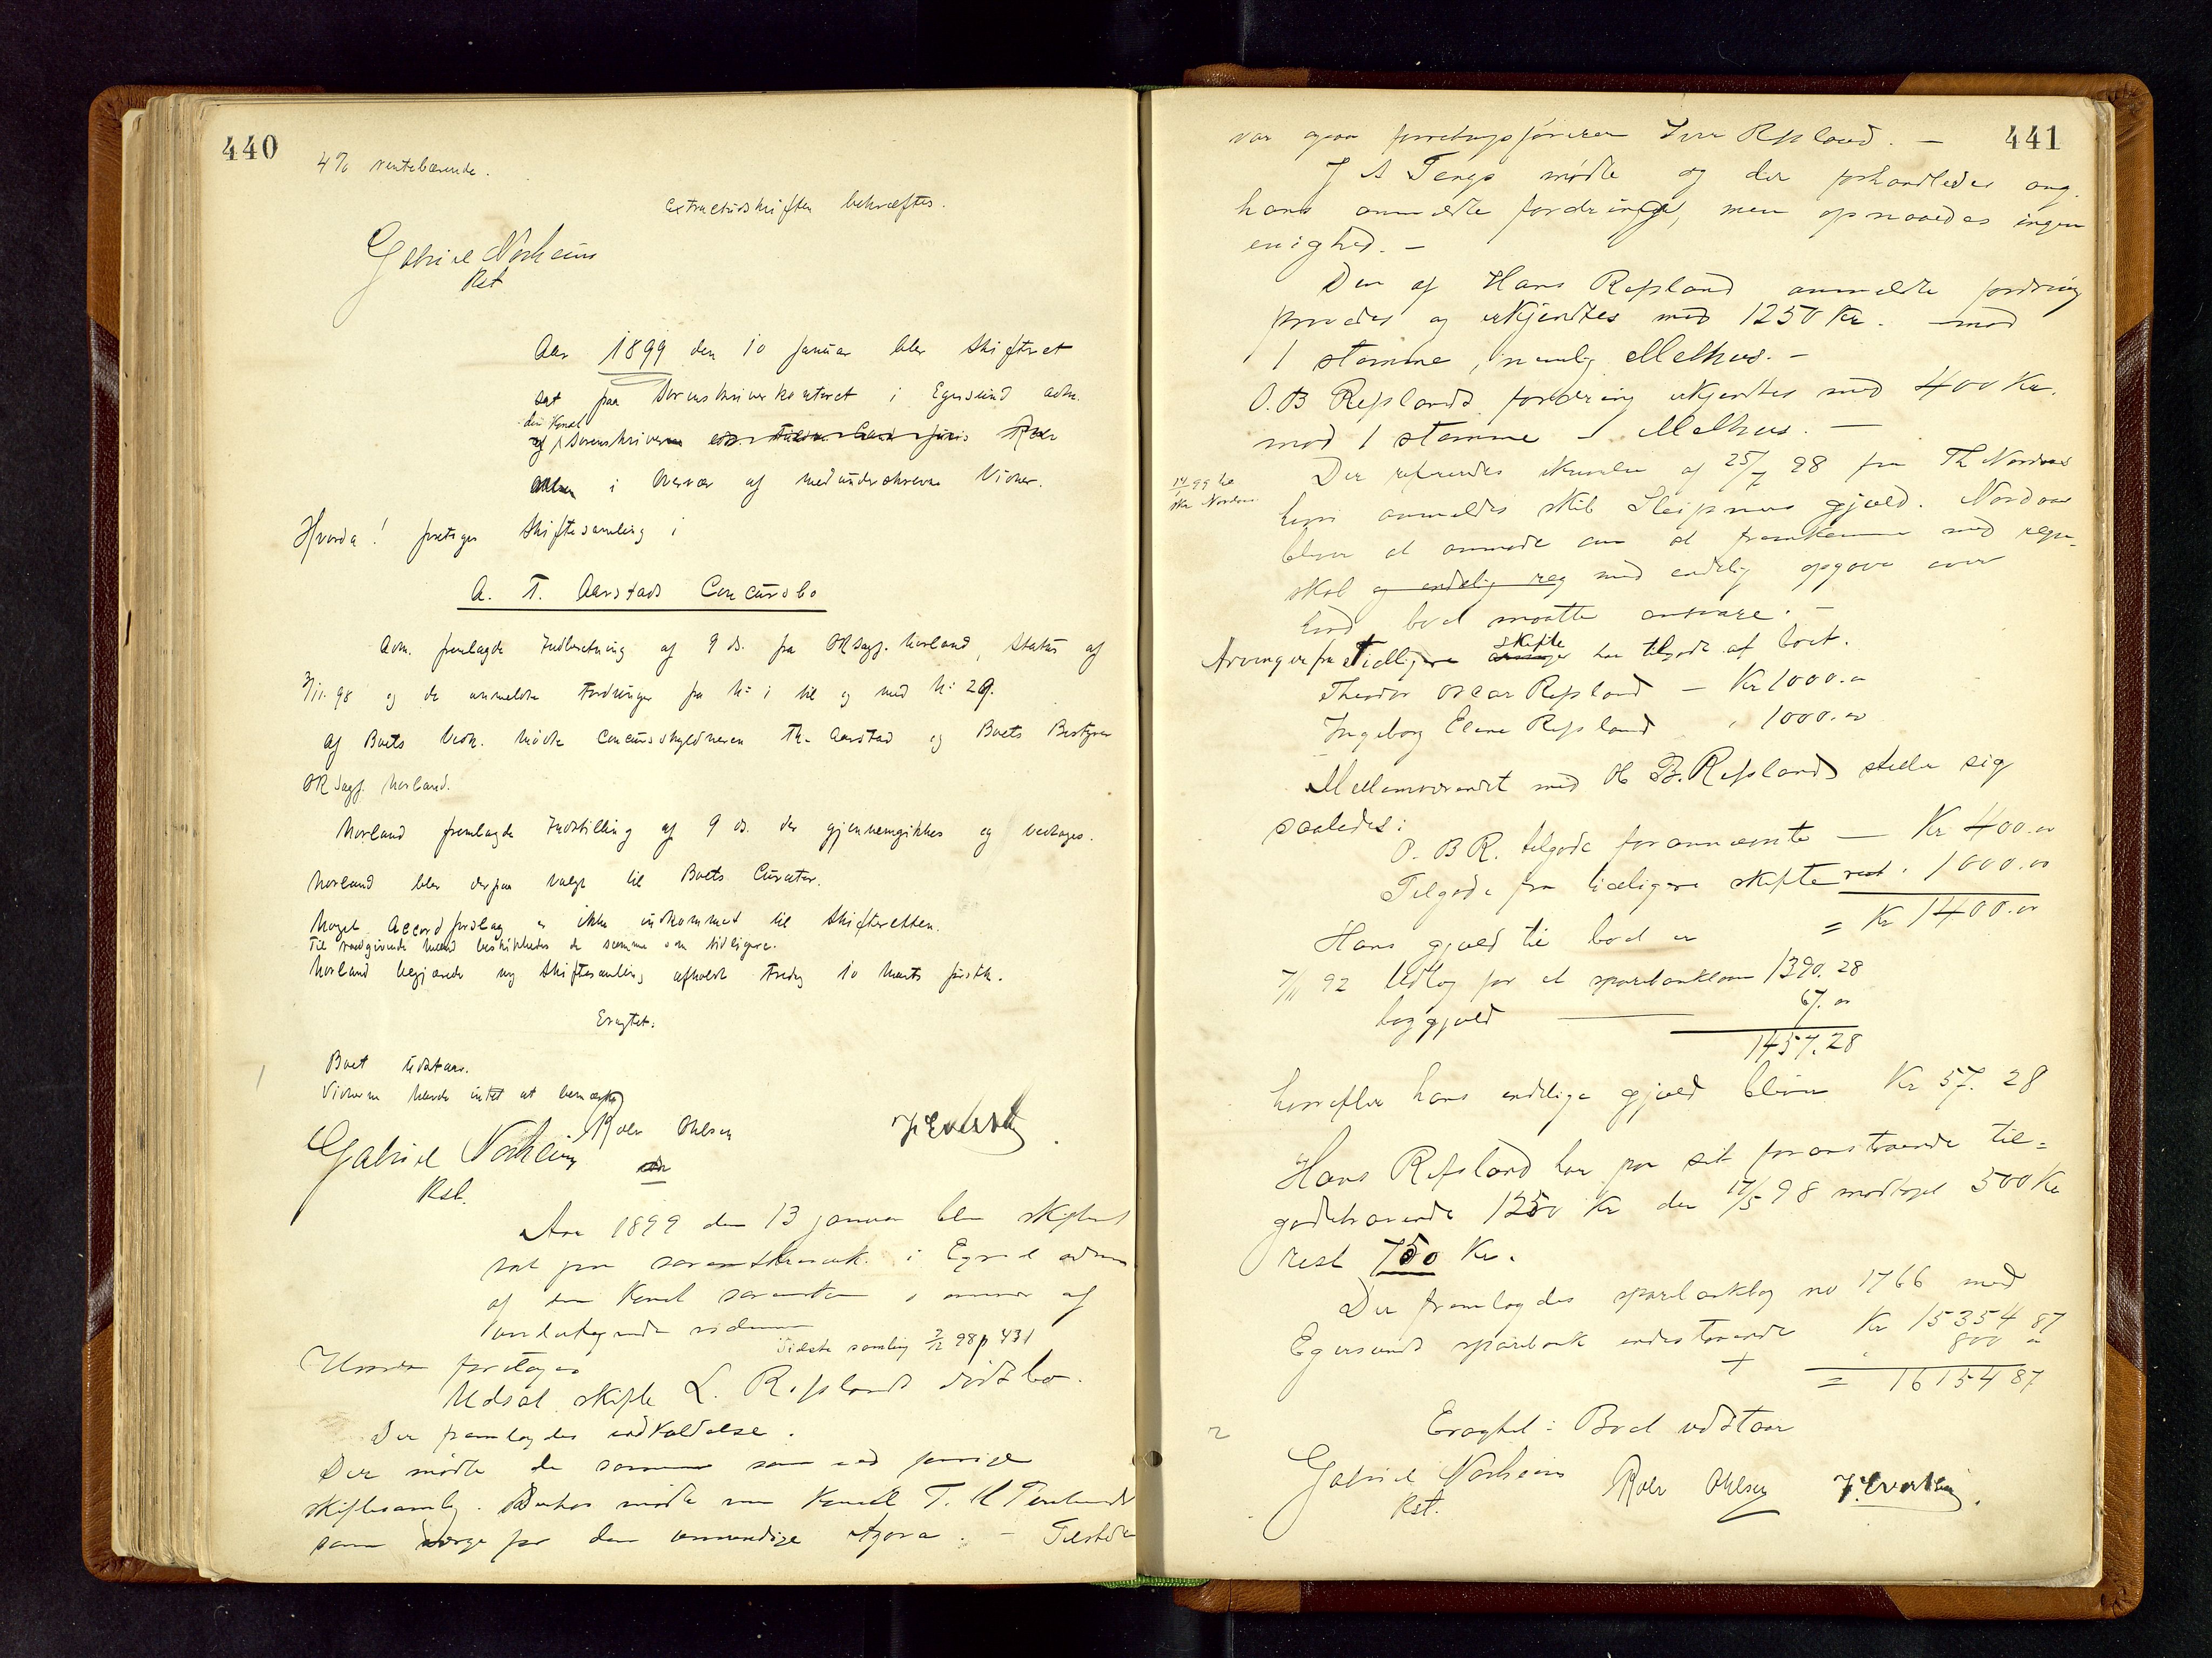 440
4% rentebærende.
Extractudskriften bekræftes.
Gabriel Norheim
Rst
Aar 1899 den 10 januar blev Skifteret
sat paa Sorenskriverkontoret i Egersund adm.
den Konst
af Sorenskriveren Roer
Ohlsen i Overvær af medunderskrevne Vidner.
Hvorda! foretoges Skiftesamling i
A. T. Aarstads Concursbo
Adm. fremlagde Indberetning af 9 ds. fra ORsagf. Morland, Status af
3/11. 98 og de anmeldte Fordringer fra No 1 til og med No 29.
Af Boets Vedk. mødte Concursskyldneren Th. Aarstad og Boets Bestyrer
ORsagf. Morland.
Morland fremlagde Indstilling af 9 ds. der gjennemgikkes og vedtoges.
Morland blev derpaa valgt til Boets Curator.
Noget Accordforslag er ikke indkommet til Skifteretten.
Til raadgivende Mænd beskikkedes de samme som tidligere.
Morland begjærede ny Skiftesamling afholdt Fredag 10 Marts førstk.
Eragtet:
Boet udstaar.
Vidnerne havde intet at bemærke
Roer Ohlsen
Gabriel Norheim
Rst.
Aar 1899 den 13 januar blev skifteret
sat paa sorenskriverk. i Egersd adm
af den Konst sorenskr i overvær af
undertegnede vidner
Sidste samling 2/12 98 p 431
Hvorda foretoges
Udsat skifte L. Refslands dødsbo.
Der fremlagdes indkaldelse.
Der mødte de samme som ved forrige
skiftesamlg. Derhos mødte nu T.
som værge for den umyndige . - Tilstede
441
var ogsaa forretningsføreren Iver Refsland. -
J A Tengs mødte og der forhandledes ang.
hans anmeldte fordringer, men opnaaedes ingen
enighed. -
Den af Hans Refsland anmeldte fordring
prøvedes og erkjendtes med 1250 Kr. mod
1 stemme, nemlig Melhus. -
O. B Refslands fordring erkjendtes med 400 Kr.
mod 1 stemme - Melhus. -
Der refereredes skrivelse af 25/7 98 fra Th Nordaas
hvori anmeldes skib Sleipners gjæld. Nordaas
bliver at anmode om at fremkomme med regn-
skab og endelig reg med endelig opgave over
hvad boet maatte ansvare. -
Arvinger fra tidligere skifte har tilgode af boet.
Theodor Oscar Refsland - Kr 1000.00
Ingeborg Elene Refsland " 1000.00
Mellemværendet med O. B. Refsland stiller sig
saaledes:
O. B R. tilgode forannævnte - Kr 400.00
Tilgode fra tidligere skifte rest " 1000.00
= Kr 1400.00
Hans gjæld til boet er
7/11 92 Udlæg for et sparebanklaan 1390.28
boggjæld 67.00
1457.28
herefter hans endelige gjæld bliver Kr 57.28
Hans Refsland har paa sit foranstaaende til=
godehavende 1250 Kr den 17/5 98 modtaget 500 Kr
rest 750 Kr.
Der fremlagdes sparebankbog no 1766 med
Egersunds sparebank indestaaende Kr 15354 87
+ " 800 "
= 16154 87
Eragtet: Boet udstaar
Gabriel Norheim Roer Ohlsen
Rst.